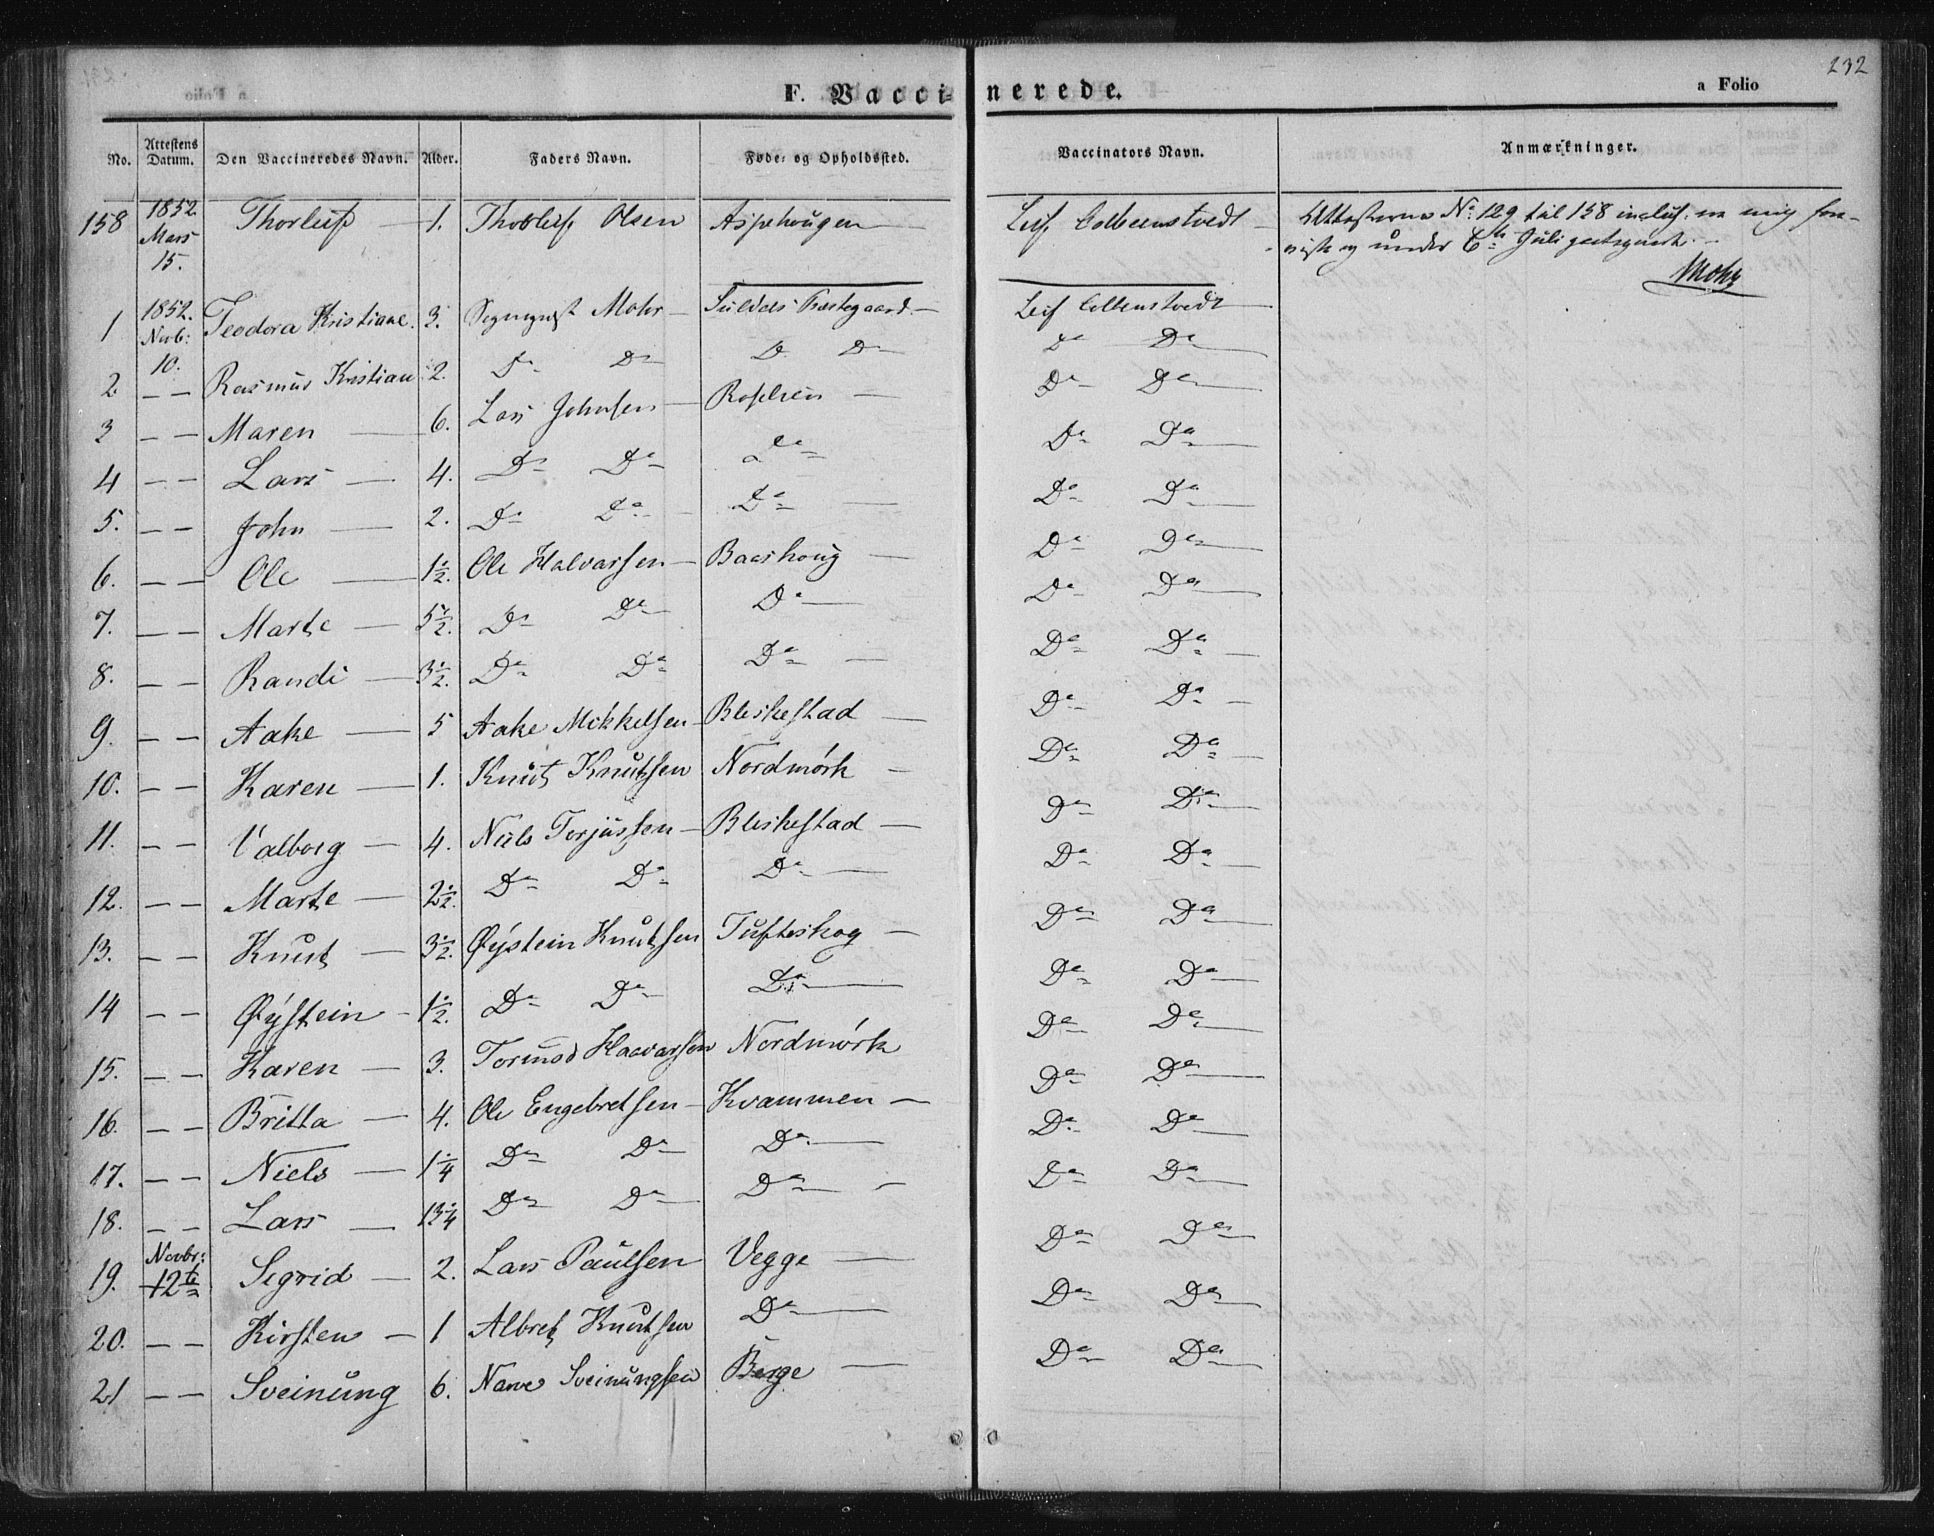 232
F. Vaccinerede.
a Folio
No. | Attestens Datum. | Den Vaccineredes Navn. | Alder. | Faders Navn. | Føde- og Opholdssted. | Vaccinators Navn. | Anmærkninger.
158 | 1852. Mars 15. | Thorleif — | 1. | Thorleif Olsen | Aspehougen — | Leif Colbeenstvedt — | Attesterne No. 129 til 158 inclus. ere mig fore-
viste og under 6te Juli
Mohr
1 | 1852. Novb: 10. | Teodora Kristiane. | 3. | Sogneprest Mohr — | Suldals Præstegaard — | Leif Colbenstvedt
2. | — — | Rasmus Kristian | 2. | Do Do | Do Do | Do Do
3 | — — | Maren — | 6. | Lars Johnsen — | Roalkvam — | Do Do
4 | — — | Lars — | 4. | Do Do | Do | Do Do
5. | — — | John — | 2. | Do Do | Do — | Do Do
6. | — — | Ole — | 1½. | Ole Halvarsen — | Baashoug — | Do Do
7. | — — | Marte — | 5½. | Do Do | Do — | Do Do
8. | — — | Randi — | 3½. | Do Do | Do — | Do Do —
9. | — — | Aake — | 5 | Aake Mikkelsen — | Bleskestad — | Do Do —
10. | — — | Karen — | 1. | Knut Knutsen | Nordmørk — | Do Do —
11. | — — | Valborg — | 4. | Niels Torjussen — | Bleskestad — | Do Do —
12. | — — | Marte — | 2½. | Do Do | Do — | Do Do —
13. | — — | Knut — | 3½. | Øystein Knutsen | Tufteskog — | Do Do
14 | — — | Øystein — | 1½. | Do Do | Do — | Do Do
15. | — — | Karen — | 3. | Tormod Haavarsen | Nordmørk | Do Do
16. | — — | Britta — | 4. | Ole Engebretsen — | Kvammen — | Do Do
17. | — — | Niels — | 1¼ | Do Do | Do — | Do Do
18. | — — | Lars — | 13/4 | Do Do — | Do — — | Do Do
19. | Novbr: 12te | Sigrid — | 2. | Lars Paulsen | Vegge — | Do Do
20. | — — | Kirsten — | 1 | Albret Knutsen | Do — | Do Do
21 | — — | Sveinung | 6. | Narve Sveinungsen | Berge — | Do Do